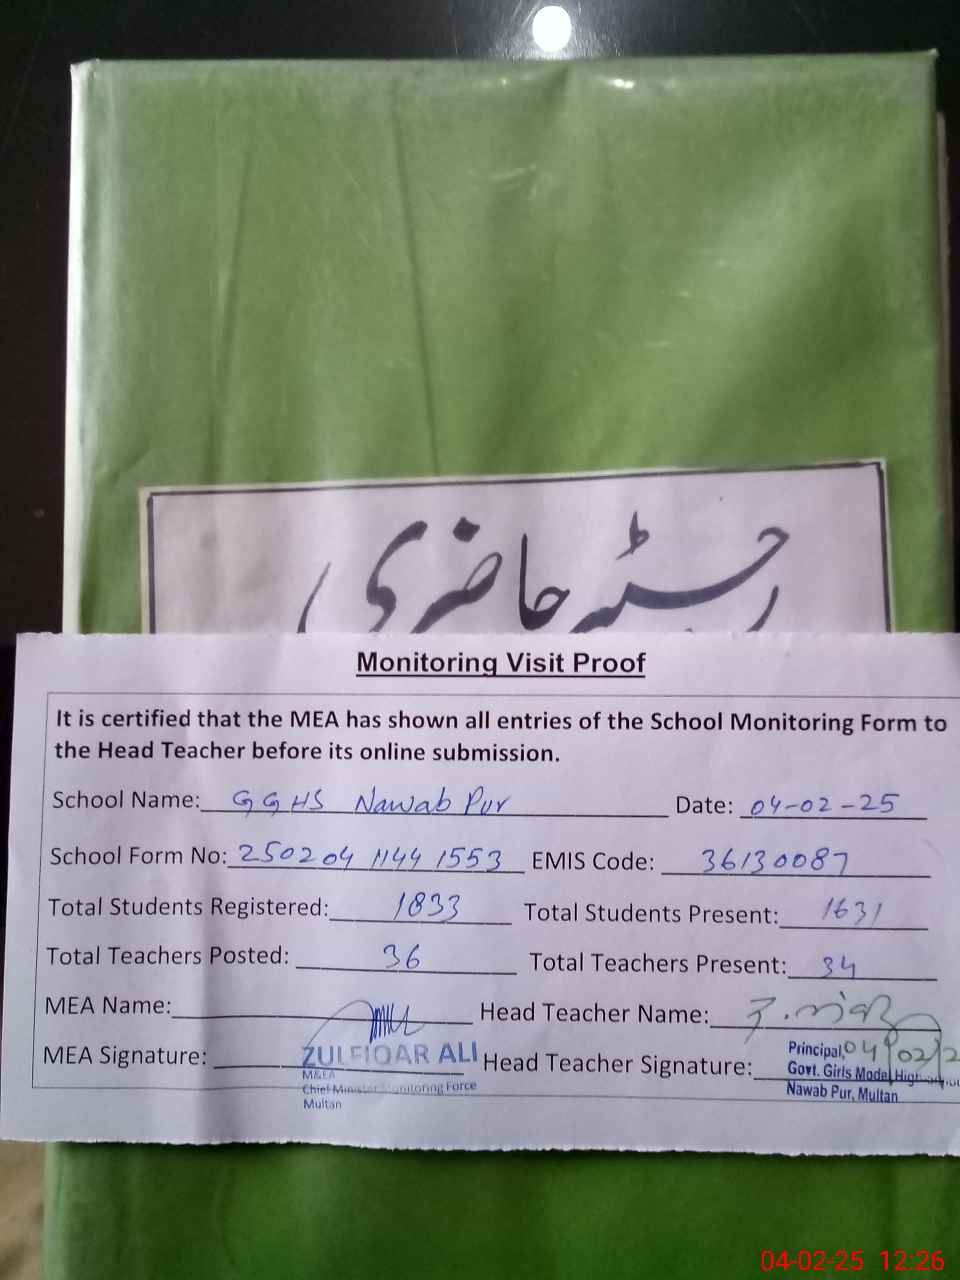 رجسٹر حاضری
Monitoring Visit Proof
It is certified that the MEA has shown all entries of the School Monitoring Form to
the Head Teacher before its online submission.
School Name: GGHS Nawab Pur Date: 04-02-25
School Form No: 250204 1144 1553 EMIS Code: 36130087
Total Students Registered: 1833 Total Students Present: 1631
Total Teachers Posted: 36 Total Teachers Present: 34
MEA Name: Head Teacher Name:
MEA Signature: Head Teacher Signature:
ZULFIQAR ALI
M&EA
Chief Minister Monitoring Force
Multan
Principal, 04/02/2
Govt. Girls Model High
Nawab Pur, Multan
04-02-25 12:26